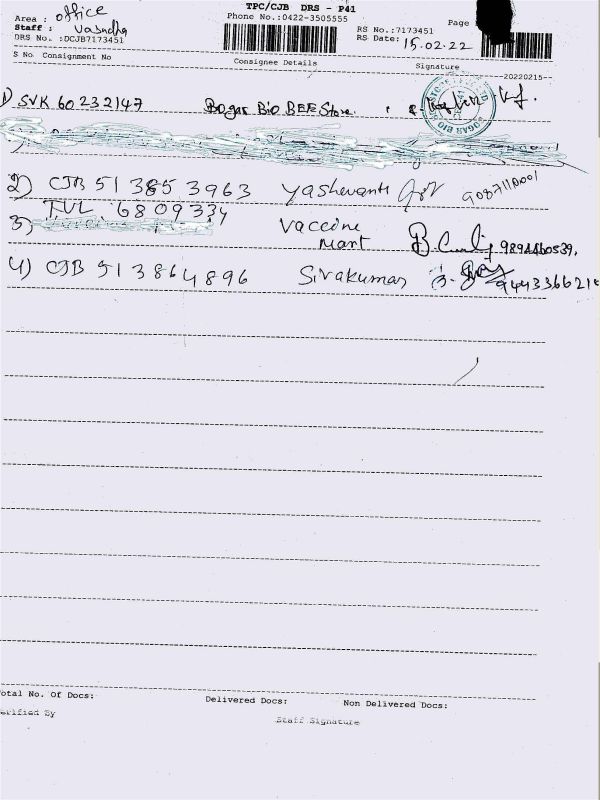 TPC/CJB DRS - P41
Area : office
Phone No.:0422-3505555
Page
Staff : Vasndha
RS No.:7173451
DRS No. :DCJB7173451
RS Date: 15.02.22
S No Consignment No Consignee Details Signature
20220215
1) SVK 60232147 Bogar Bio BEE Store.
2) CJB 513853963 Yashevanth 9087110001
3) TVL 6809334 Vaccine Mart 9894460539.
4) CJB 513864896 Sivakumar 944336621
Total No. Of Docs: Delivered Docs: Non Delivered Docs:
Verified By Staff Signature